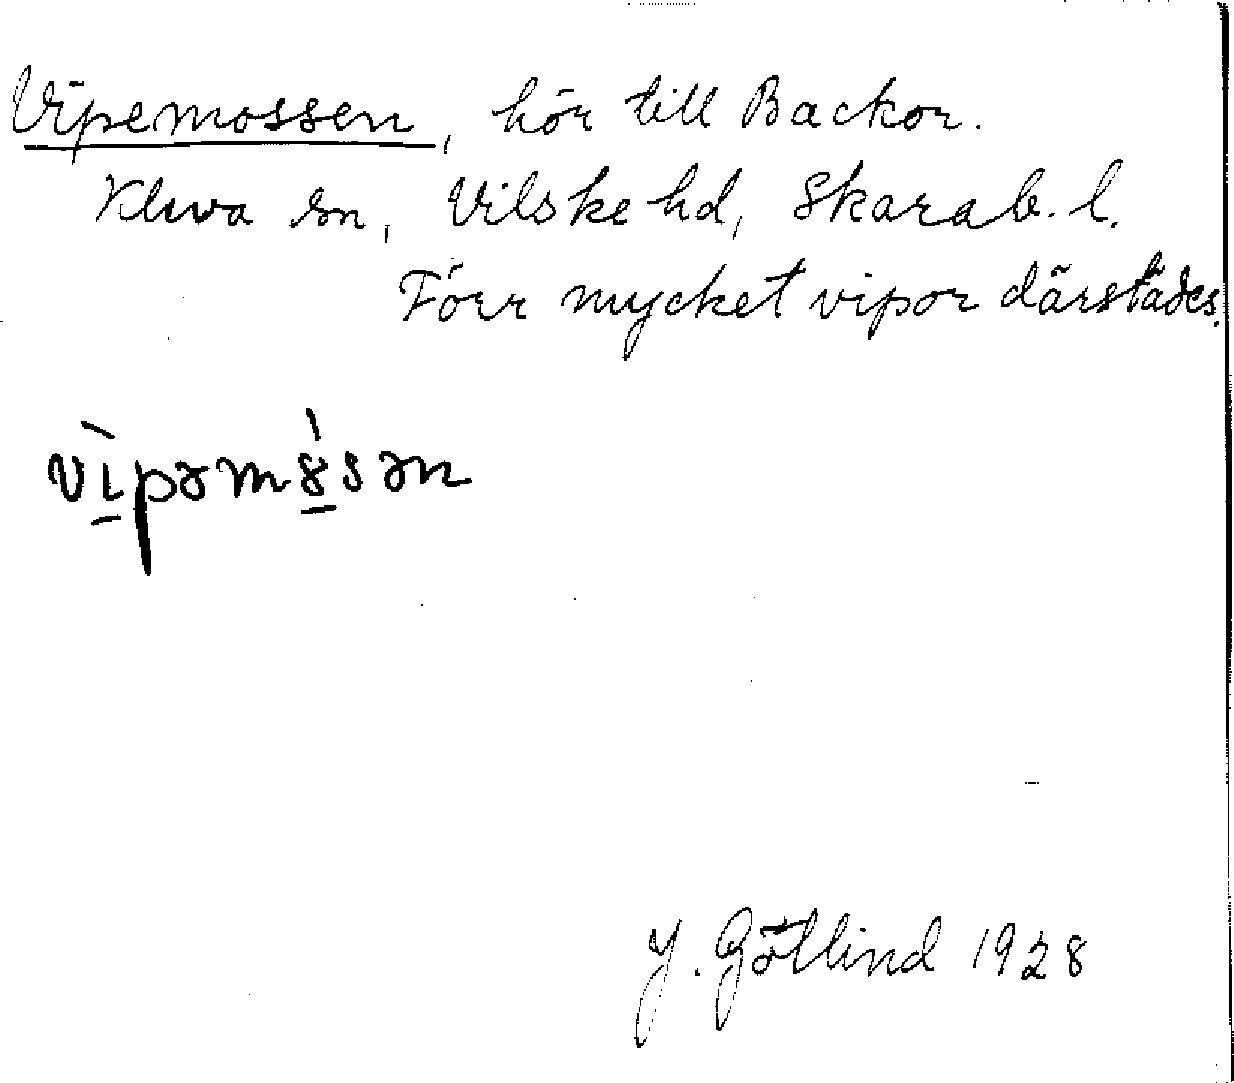 Vipemossen, hör till Backor.
Kleva sn, Vilske hd, Skarab. l.
Förr mycket vipor därstädes.
vìpəmósən
J. Götlind 1928